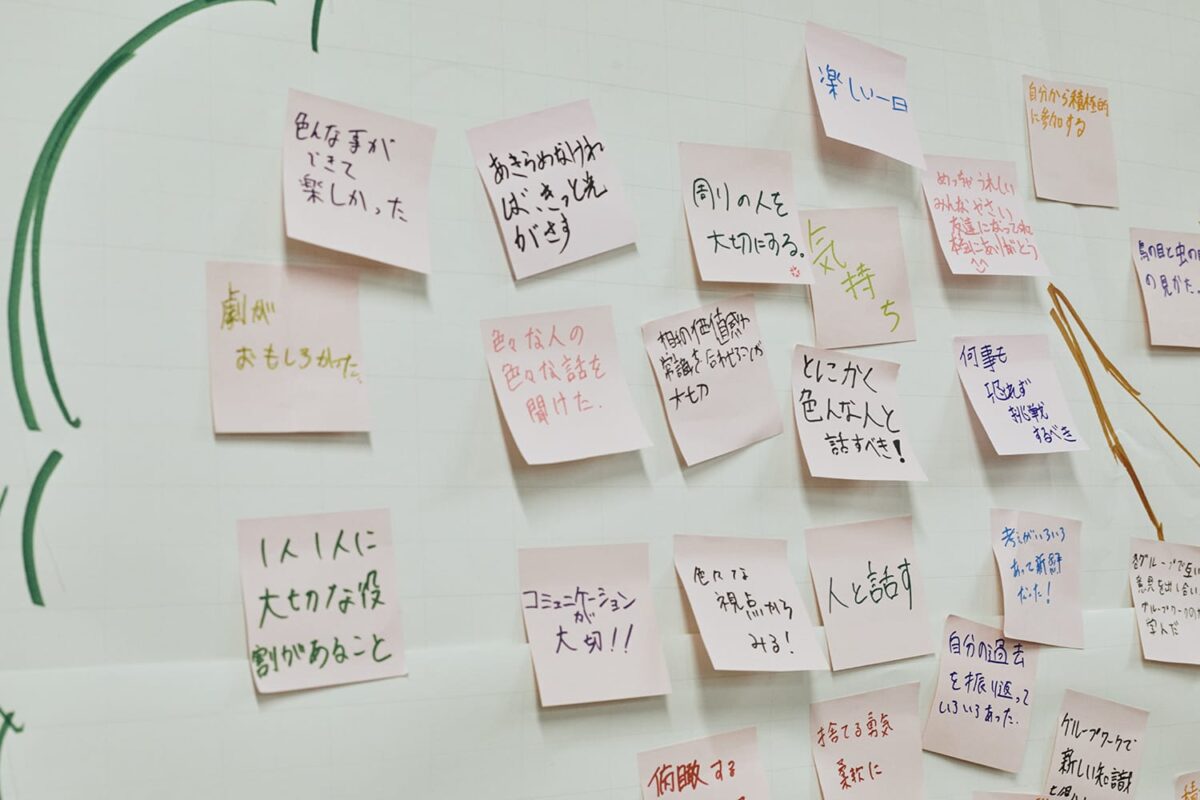 色んな手が
できて
楽しかった
あきらめなけれ
ば、きっと光
がさす
周りの人を
大切にする。
楽しい一日
自分から積極的
に参加する
気
持
ち
めっちゃうれしい
みんなやさい
友達になってくれ
本当にありがとう
鳥の目と虫の目
の見かた。
劇が
おもしろかった。
色々な人の
色々な話を
聞けた.
相手の価値感や
常識を合わせることが
大切
とにかく
色んな人と
話すべき!
何事も
恐れず
挑戦
するべき
1人1人に
大切な役
割があること
コミュニケーション
が
大切!!
色々な
視点から
みる!
人と話す
考えがいろいろ
あって新鮮
だった!
各グループで互い
意見を出し合い
グループワークの
学んだ
自分の過去
を振り返って
いろいろあった.
俯瞰する
捨てる勇気
柔軟に
グループワークで
新しい知識